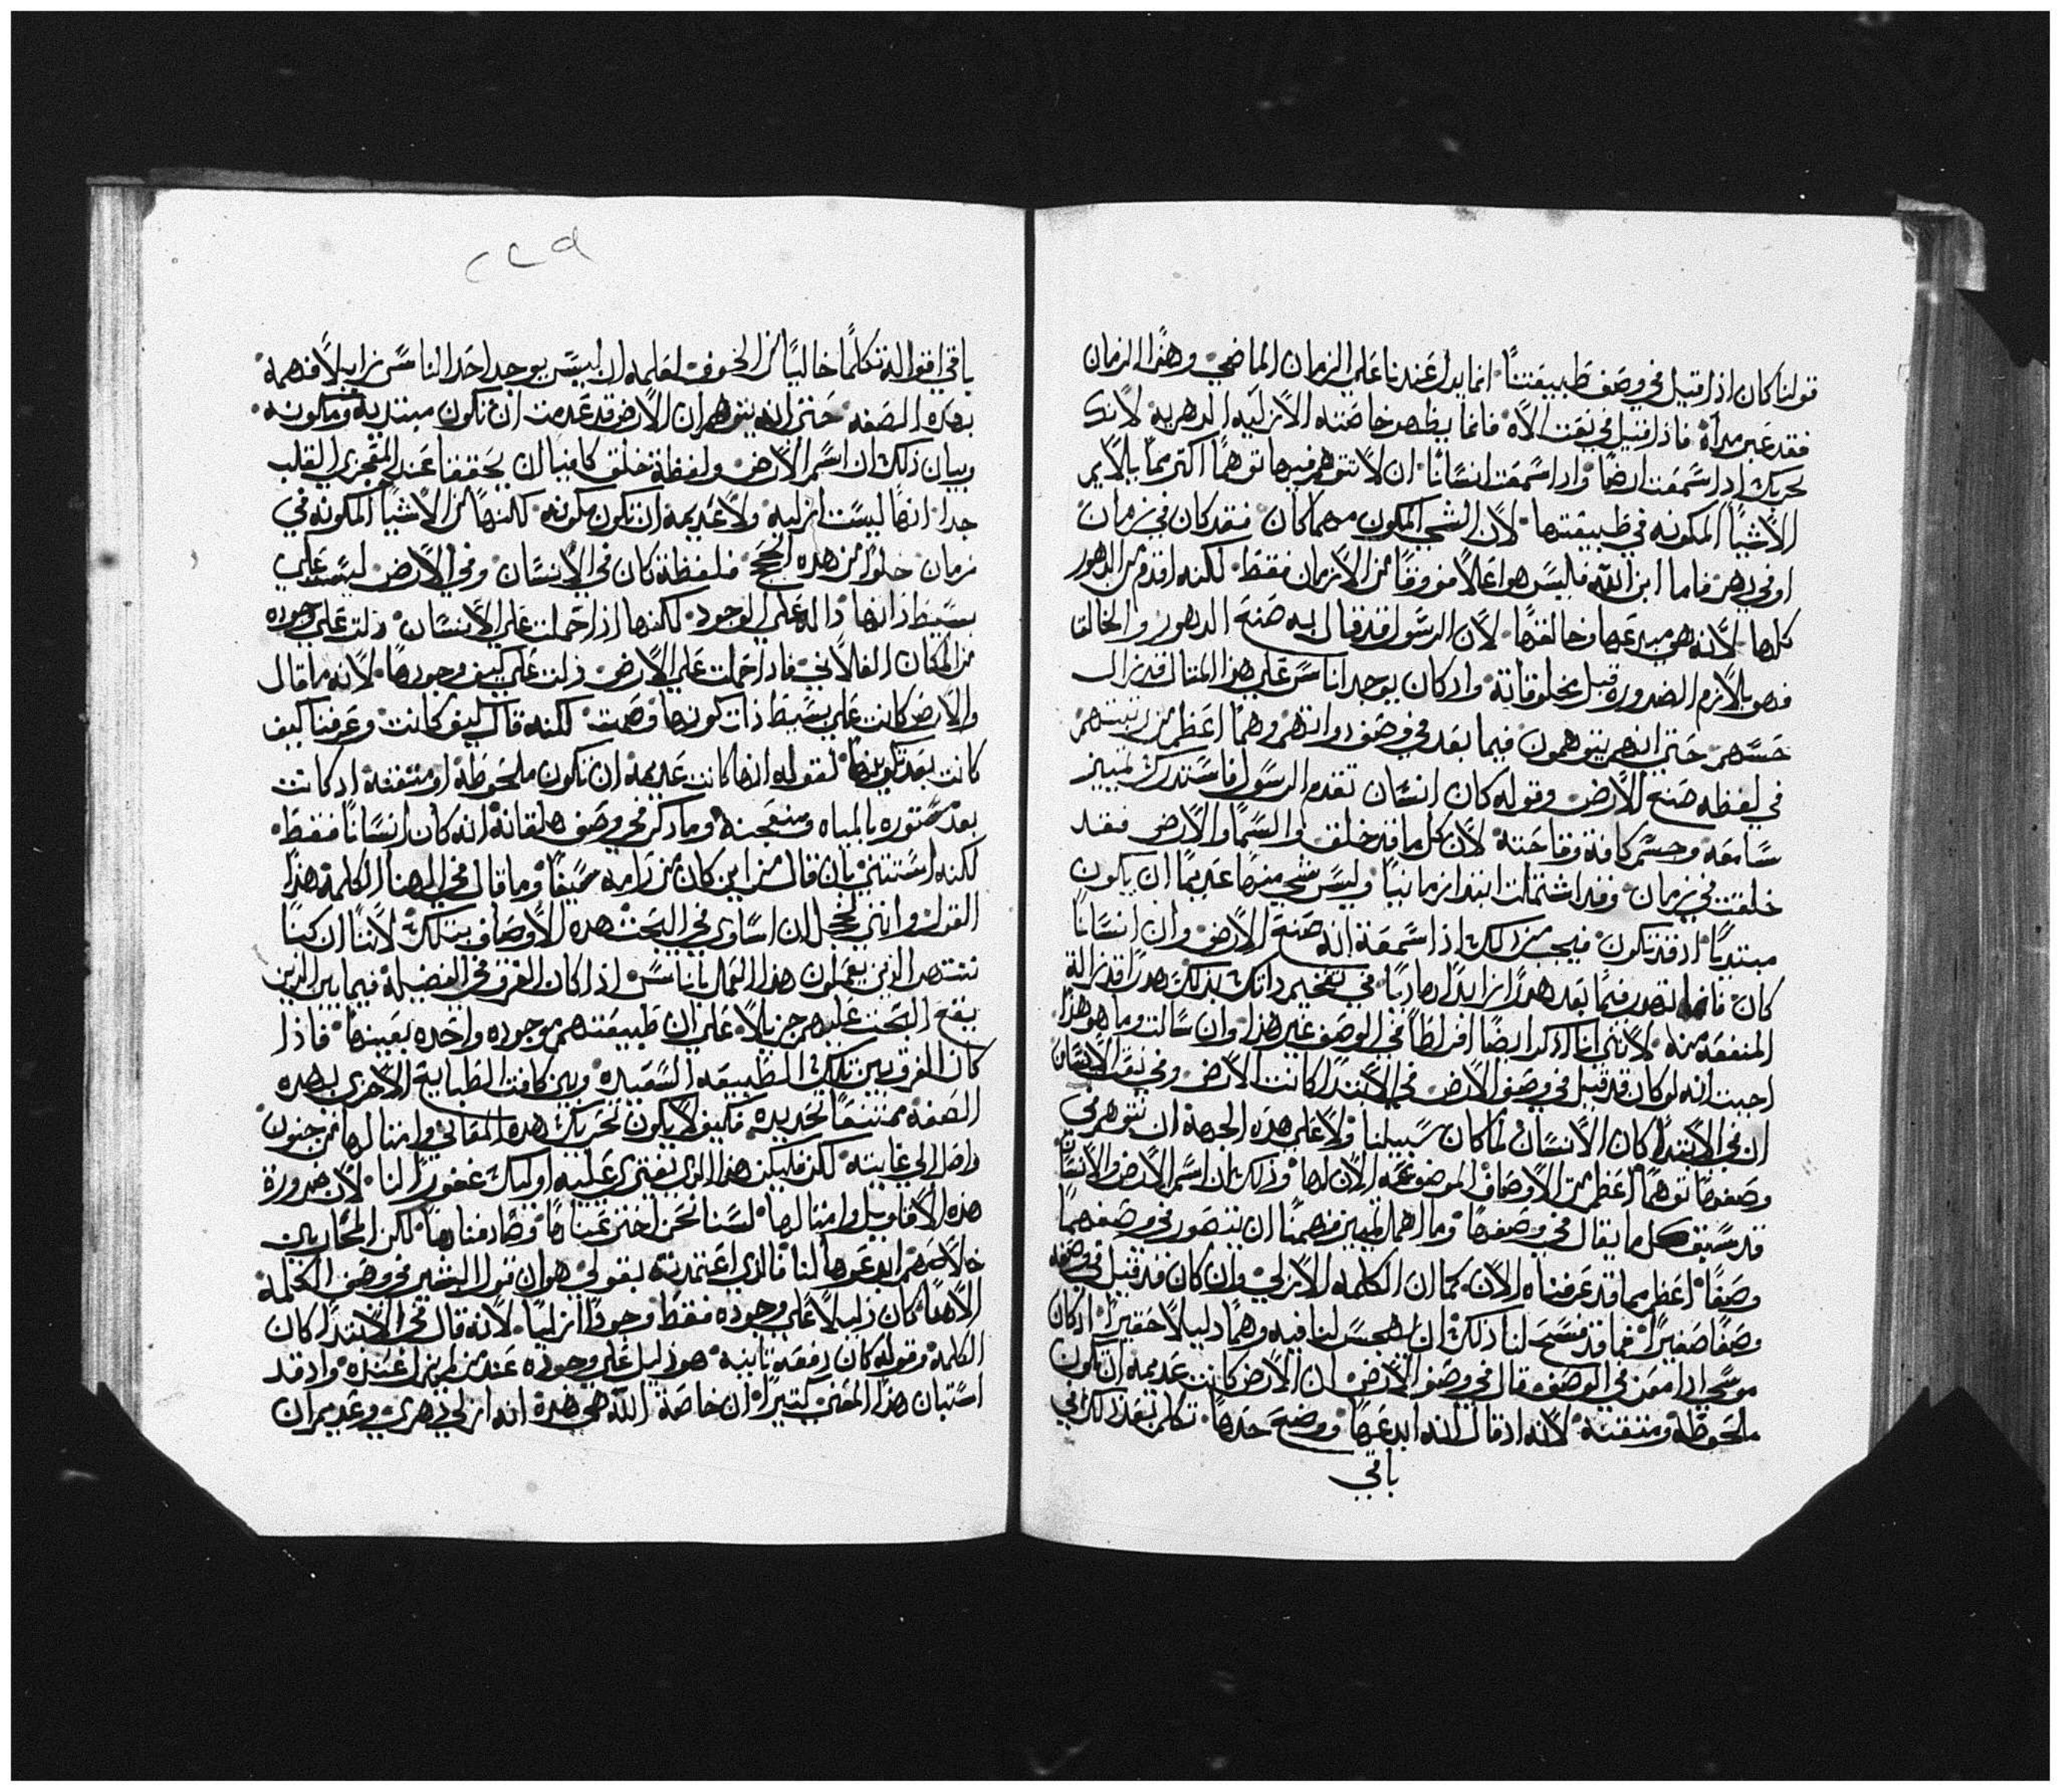 قولنا كان اذا قيل في وصف طبيعتنا انما يدل عندنا على الزمان الماضي وهذا الزمان
فقد عبر مداه فاذا قيل في نعت الاه فانما يظهر خاصته الازليه الدهريه لانك
اذا سمعت ارضًا واذا سمعت انسانًا ان لا تتوهم فيها توهمًا اكثر مما يلايم
الاشيا المكونه في طبيعتها لان الشي المكون مهما كان فقد كان في زمان
او في دهر فاما ابن الله فليس هو اعلا من الازمان فقط لكنه اقدم من الدهور
كلها لانه هو مبدعها وخالقها لان الرسول قد قال به صنع الدهور والخالق
فهو بلازم الضروره قبل مخلوقاته واذ كان يوجد اناس على هذا المثال قد زال
حسهم حتى انهم يتوهمون فيما بعد في وصف ذواتهم وهمًا اعظم من رتبتهم
في لفظه صنع الارض وقوله كان انسان تقدم الرسول فاستدرك تمييز
سامعه وحسم كافة وقاحته لان كل ما قد خلق والسما والارض فقد
خلقت في زمان وقد اشتملت ابتدا زمانيًا وليس شي منها عديمًا ان يكون
مبتديًا اذ قد تكون فيجب من ذلك اذا سمعت انه صنع الارض وان انسانًا
كان فانما تهدر فيما بعد هدرًا زايدًا هاديًا في تفخيم ذاتك بذلك هدرًا قد زال
المنفعه منه لانني انا اذكر ايضًا افراطًا في الوصف غير هذا وان سالت وما هو هذا
اجبت انه لو كان قد قيل في وصف الارض في الابتدا كانت الارض وفي نعت الانسان
ان في الابتدا كان الانسان لما كان سبيلنا ولا على هذه الجهة ان نتوهم في
وصفهما توهمًا اعظم من الاوصاف الموضوعه الان لها وذلك ان اسم الارض والانسان
قد سبق كل ما يقال في وصفها وما اهمل تمييز فهمنا ان يتصور في وصفهما
وصفًا اعظم مما قد عرفناه الان كما ان الكلمه الازلي وان كان قد قيل في وصفه
وصفًا صغيرًا فما قد فسح لنا ذلك ان يهجس لنا فيه وهمًا دليلًا حقيرًا اذ كان
موسي اذ امعن في الوصف قال في وصف الارض ان الارض كانت عديمه ان تكون
ملحوظة ومتقنه لانه اذ قال انه ابدعها ووضع حدها تكلم بعد ذلك في
باقي
٢٤٩
باقي اقواله تكلمًا خاليًا من الخوف لعلمه ان ليس يوجد احد الناس زايلًا فهمه
بهذه الصفه حتى انه يتوهم ان الارض قد عدمت ان تكون مبتديه ومكونه
وبيان ذلك ان اسم الارض ولفظة خلق كافيان ان يحققا عند القلب
جدا انها ليست ازليه ولا عديمه ان تكون مكونه لكنها من الاشيا المكونه في
زمان خلوًا من هذه الحجج فلفظة كان في الانسان وفي الارض ليست على
بسيط ذاتها داله على الوجود لكنها اذا حملت على الانسان دلت على وجوده
من المكان الفلاني فاذا حملت على الارض دلت على كيف وجودها لانه ما قال
والارض كانت على بسيط ذات كونها وصمت لكنه قال كيف كانت وعرفنا كيف
كانت بعد تكوينها لقوله انها كانت عديمه ان تكون ملحوظه او متقنه اذ كانت
بعد مستوره بالمياه وما ذكر في وصف هلقانه انه كان انسانًا فقط
لكنه استثنى بان قال من اين كان من رامه وما قال في الهنا الكلمه هذا
القول وانني لخجل ان اساوي في البحث هذه الاوصاف بتلك لاننا ان كنا
ننتهر الذين يعملون هذا العمل باناس اذا كان الفرق في الفضيلة فيما بين الذين
يقع البحث عليهم جزيلًا على ان طبيعتهم موجوده واحده بعينها فاذا
كان الفرق بين تلك الطبيعه السعيده وبين كافة الطبايع الاخرى بهذه
الصفه ممتنعًا تحديده فكيف لا يكون تحريك هذه المعاني وامثالها من جنون
واصل الي غايته لكن فليكن هذا الذي نفتري عليه اوليك غفورًا لنا لان ضرورة
هذه الاقاويل وامثالها لسنا نحن اخترعناها وصادفناها لكن المحاربين
خلاصهم ابدعوها لنا فالذي اعتمدته بقولي هو ان قول البشير في وصف الكلمة
الاهنا كان دليلًا على وجوده فقط وجودًا ازليًا لانه قال في الابتدا كان
الكلمة وقوله كان دفعة ثانيه هو دليل على وجوده عند من لم يزل عنده واذ قد
استبان هذا المعنى كثيرًا ان خاصة الله هي هذه انه ازلي دهري وعديم ان